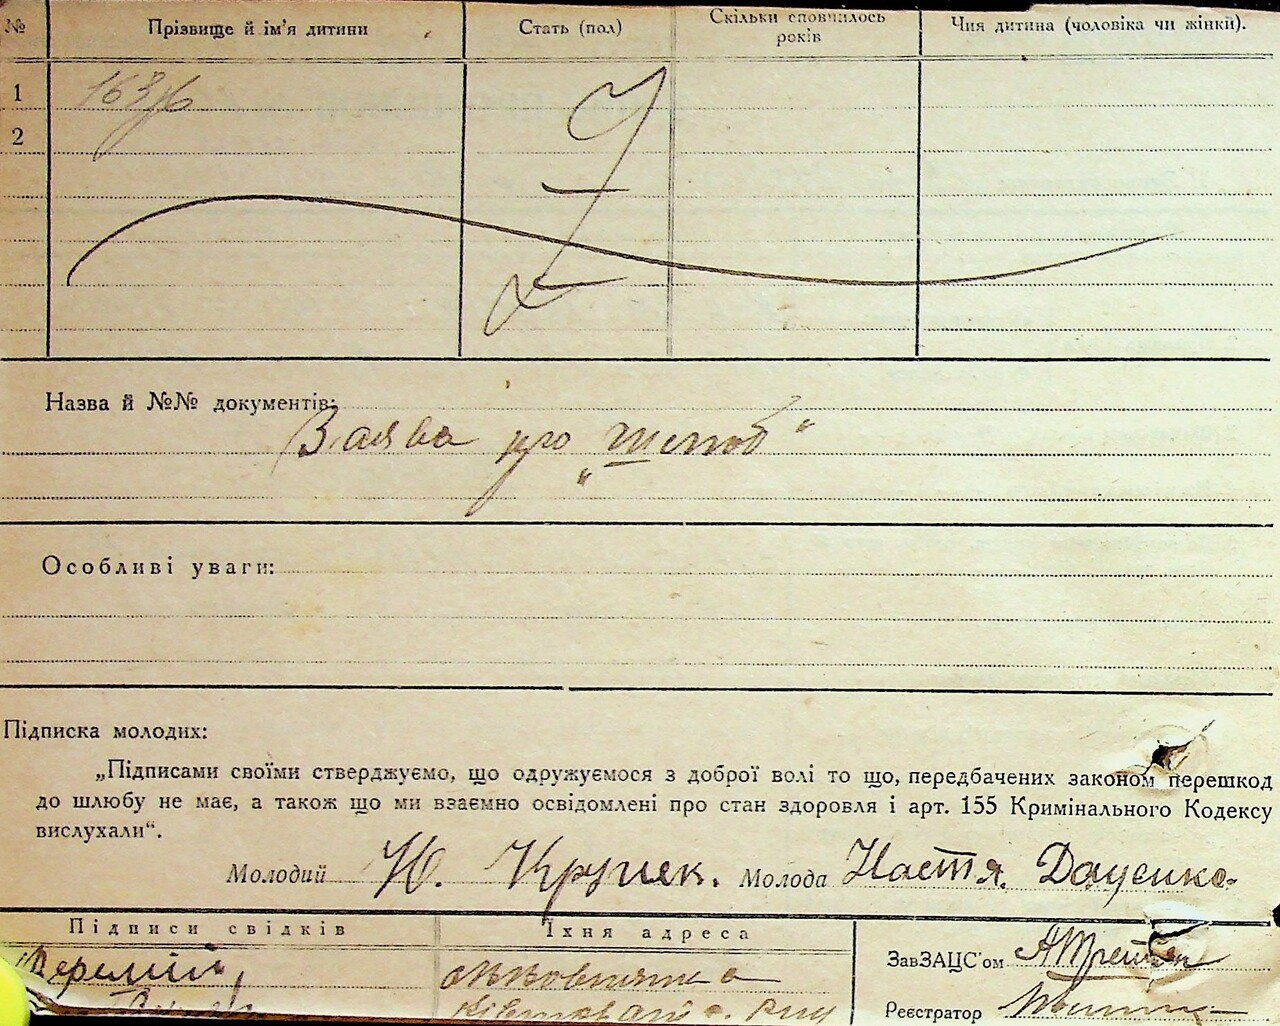 № Прізвище й ім'я дитини Стать (пол) Скільки сповнилось років Чия дитина (чоловіка чи жінки).
1 163
2
Назва й №№ документів:
Заява про „шлюб“
Особливі уваги:
Підписка молодих:
„Підписами своїми стверджуємо, що одружуємося з доброї волі то що, передбачених законом перешкод
до шлюбу не має, а також що ми взаємно освідомлені про стан здоровля і арт. 155 Кримінального Кодексу
вислухали“.
Молодий Ю. Молода Настя Даценко
Підписи свідків Їхня адреса
ЗавЗАЦС'ом
Реєстратор